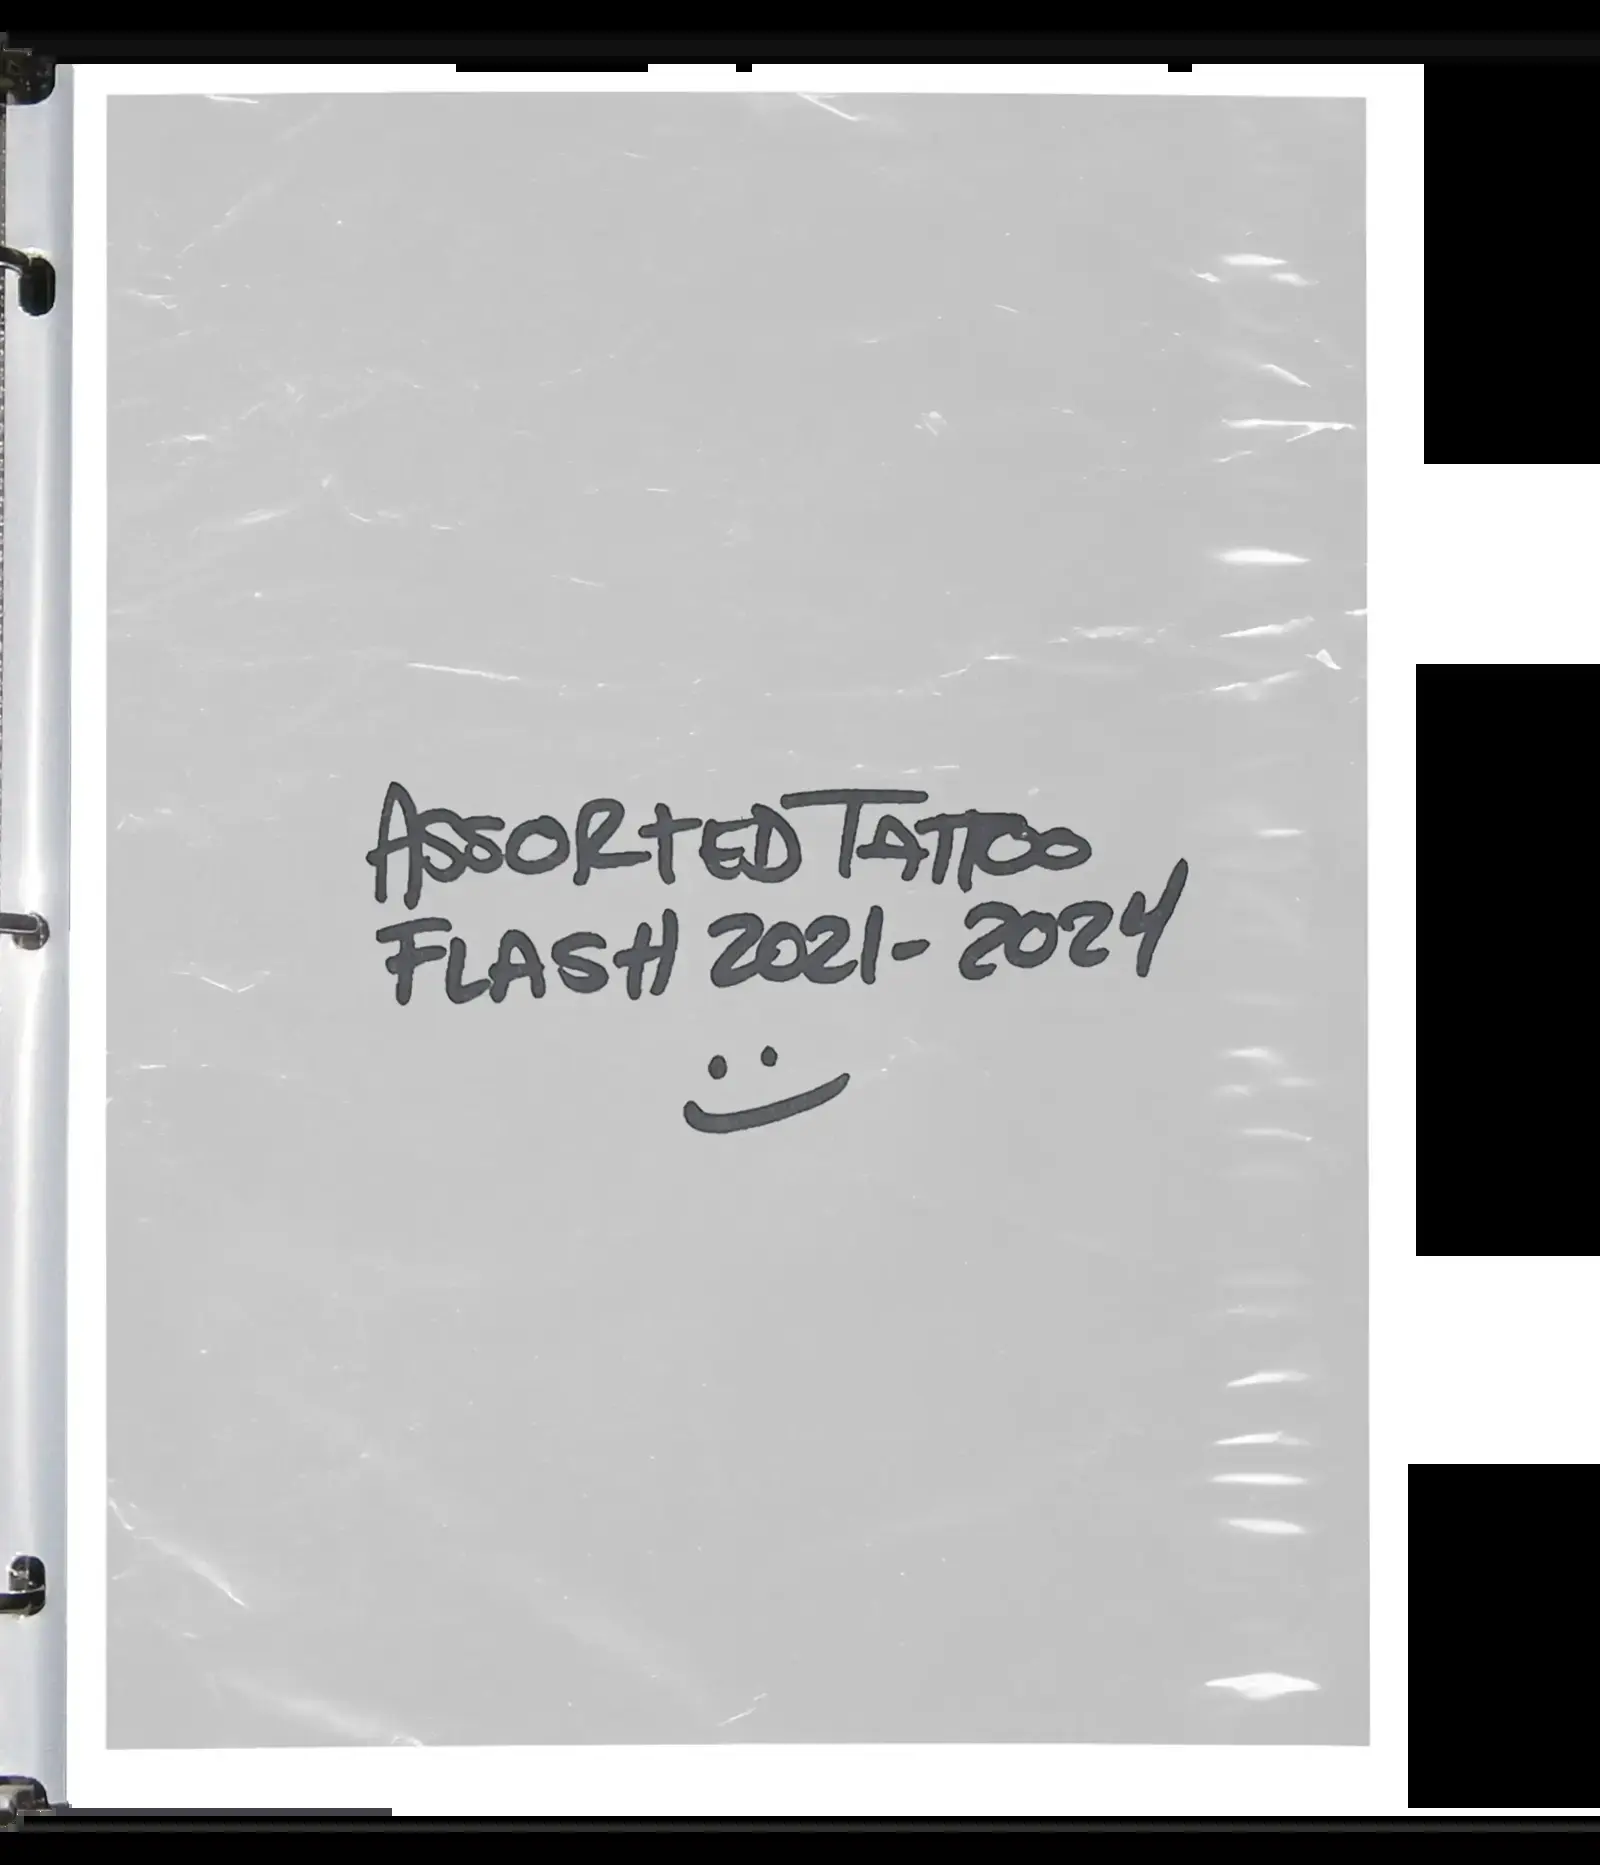 ASSORTED TATTOO
FLASH 2021-2024